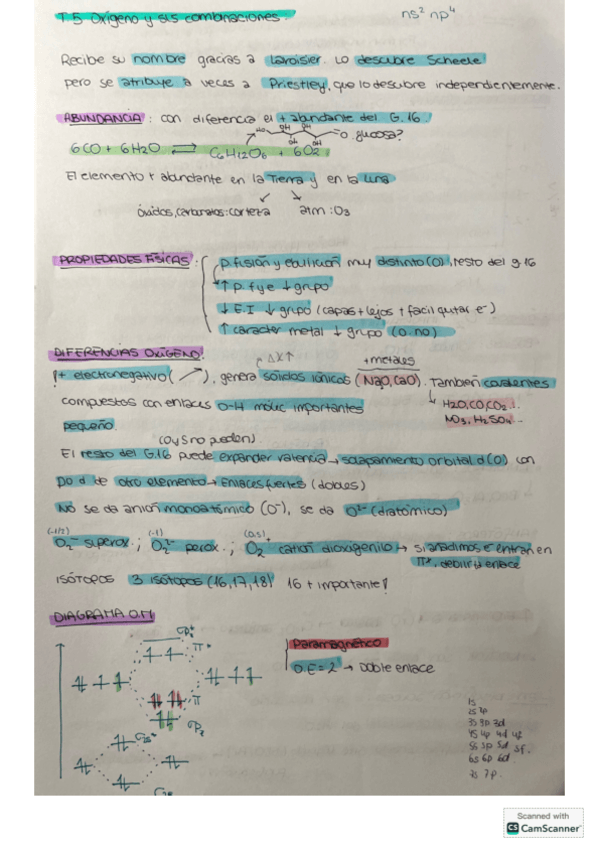 T.5 Oxígeno y sus combinaciones. ns² np⁴
Recibe su nombre gracias a Lavoisier. Lo descubre Scheele
pero se atribuye a veces a Priestley, que lo descubre independientemente.
ABUNDANCIA: con diferencia el + abundante del G.16
HO OH OH OH OH O glucosa?
6CO + 6H2O ⇌ C6H12O6 + 6O2
El elemento + abundante en la Tierra y en la luna
óxidos, carbonatos: corteza atm: O3
PROPIEDADES FÍSICAS: p. fusión y ebullición muy distinto (O), resto del g.16
↑ p. f y e ↓ grupo
↓ E.I ↓ grupo (capas + lejos + facil quitar e⁻)
↑ caracter metal ↓ grupo (O no)
DIFERENCIAS OXÍGENO!
ΔX↑ + metales
!+ electronegativo (↗), genera sólidos iónicos (Na2O, CaO). También covalentes
compuestos con enlaces O-H móléc importantes H2O, CO, CO2...
pequeño. NO3, H2SO4...
(O y S no pueden)
El resto del G.16 puede expander valencia → solapamiento orbital d (O) con
p o d de otro elemento → Enlaces fuertes (dobles)
No se da anión monoatómico (O⁻), se da O²⁻ (diatómico)
(-1/2) (-1) (0,5)
O2⁻ superox.; O2²⁻ perox.; O2⁺ catión dioxigenilo → si añadimos e⁻ entran en
π*, debilita enlace
ISÓTOPOS 3 isótopos (16,17,18) 16 + importante!
DIAGRAMA OM
σp*
π*
Paramagnético
O.E = 2 → Doble enlace
π
σp
σs*
σs
1s
2s 2p
3s 3p 3d
4s 4p 4d 4f
5s 5p 5d 5f.
6s 6p 6d
7s 7p.
Scanned with
CS CamScanner